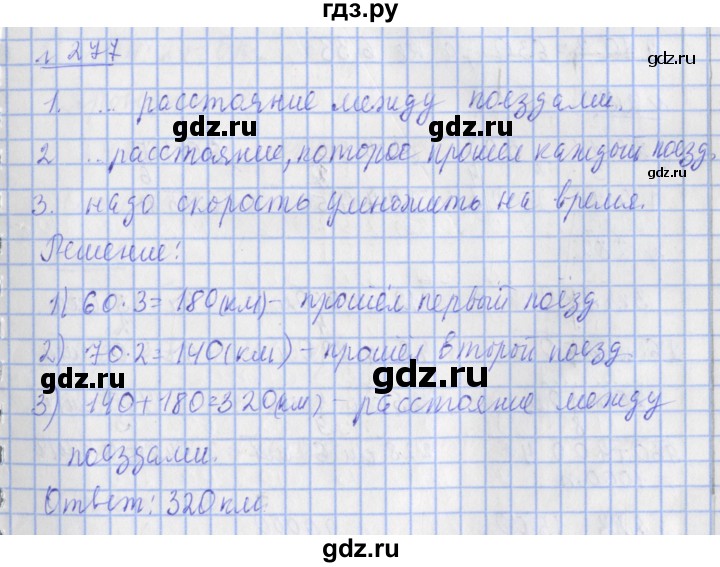 гдз.ру
№ 277
1. ... расстояние между поездами.
gdz.ru gdz.ru
2 ... расстояние, которое прошёл каждый поезд.
gdz.ru
3. надо скорость умножить на время.
Решение:
gdz.ru
1) 60·3=180(км)- прошёл первый поезд
2) 70·2=140(км)-прошёл второй поезд
gdz.ru gdz.ru
3) 140+180=320(км) - расстояние между
поездами.
gdz.ru
Ответ: 320км
gdz.ru